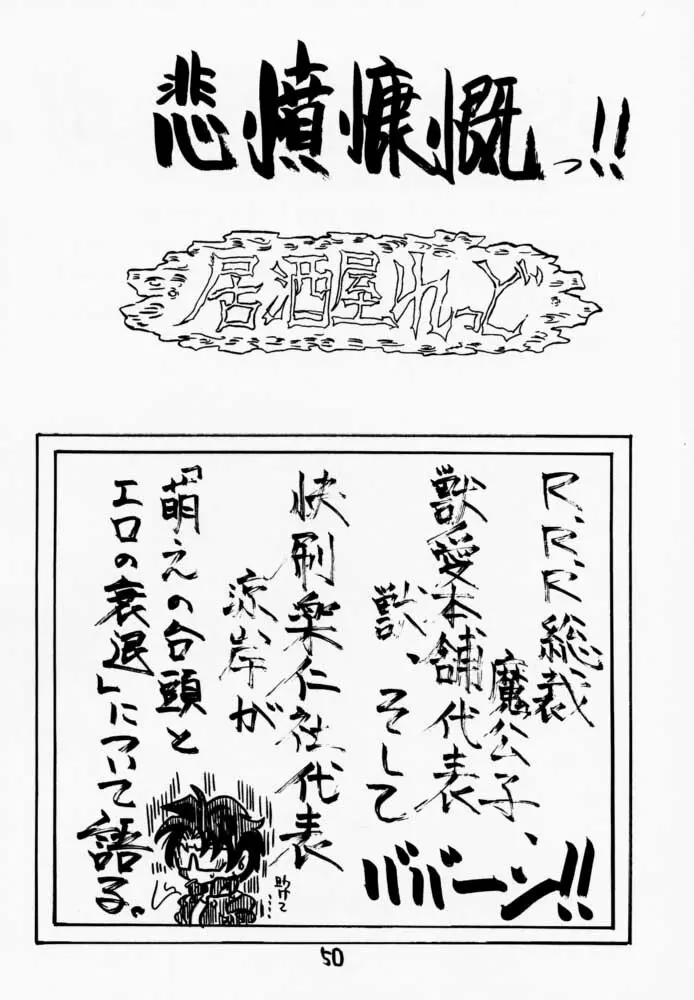 悲憤慷慨っ!!
居酒屋れっど
R.R.R総裁
魔公子、
獣愛本舗代表
獣、そして
快刷楽仁社代表
涼岸が
「萌えの台頭と
エロの衰退」について語る。
ババーン!!
助けて…
50